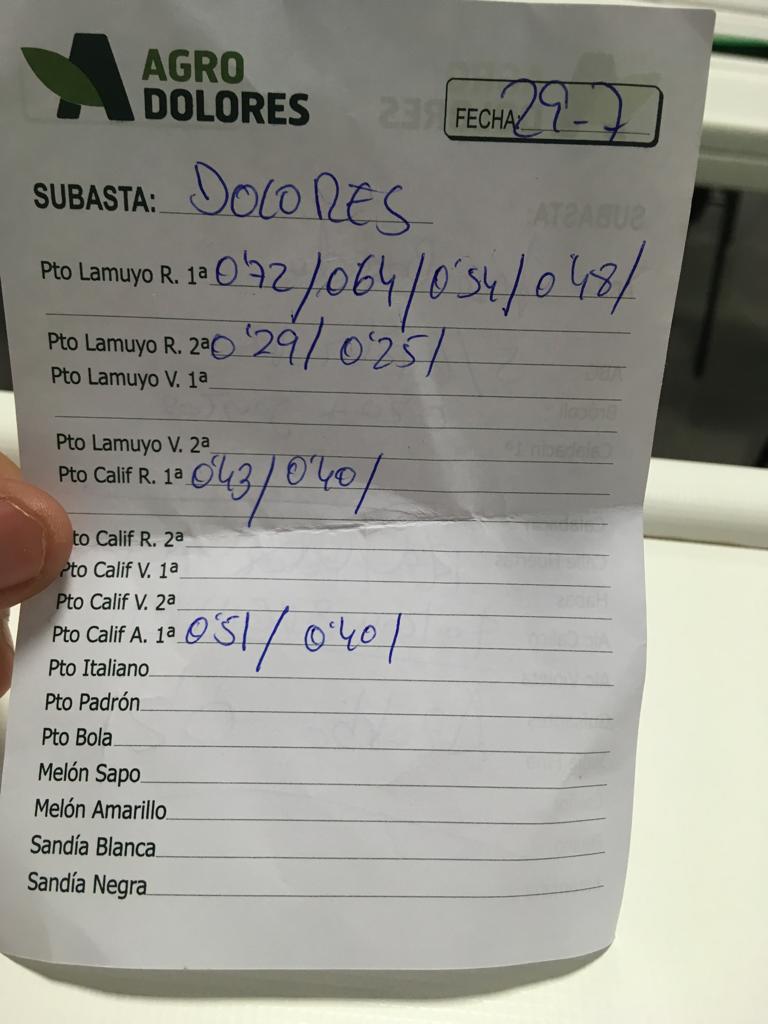 AGRO
DOLORES
FECHA: 29-7
SUBASTA: DOLORES
Pto Lamuyo R. 1ª 0'72/0'64/0'54/0'48/
Pto Lamuyo R. 2ª 0'29/ 0'25/
Pto Lamuyo V. 1ª
Pto Lamuyo V. 2ª
Pto Calif R. 1ª 0'43/ 0'40/
to Calif R. 2ª
Pto Calif V. 1ª
Pto Calif V. 2ª
Pto Calif A. 1ª 0'51/ 0'40/
Pto Italiano
Pto Padrón
Pto Bola
Melón Sapo
Melón Amarillo
Sandía Blanca
Sandía Negra